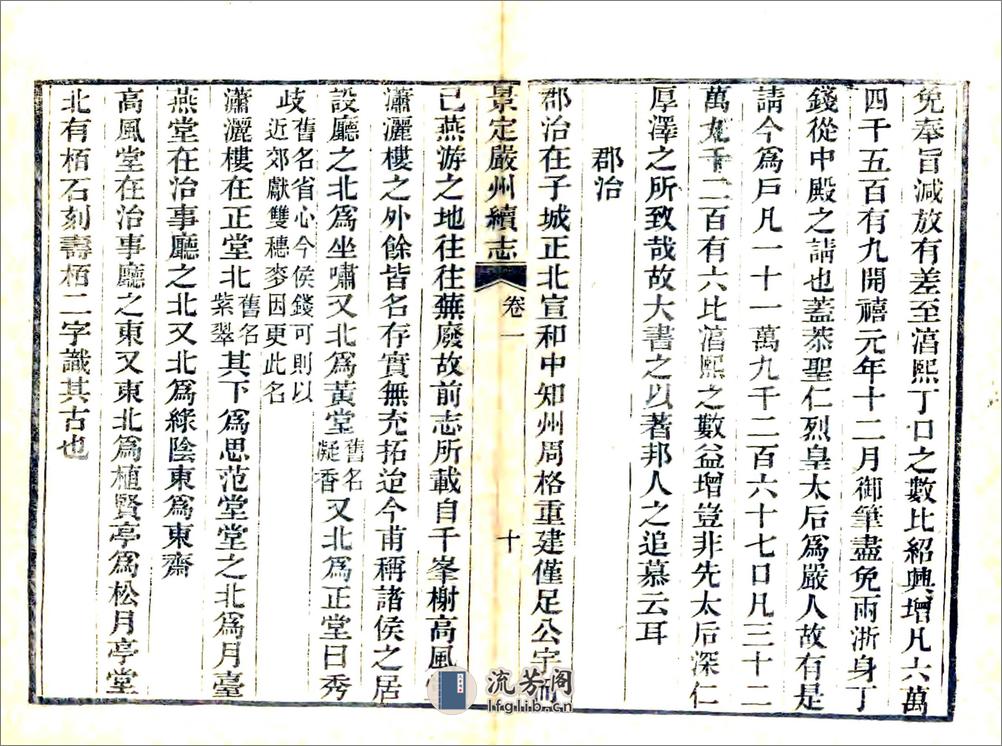 免奉旨減放有差至淳熙丁口之數比紹興增凡六萬
四千五百有九開禧元年十二月御筆盡免兩浙身丁
錢從中殿之請也蓋恭聖仁烈皇太后爲嚴人故有是
請今爲戶凡一十一萬九千二百六十七口凡三十二
萬九千二百有六比淳熙之數益增豈非先太后深仁
厚澤之所致哉故大書之以著邦人之追慕云耳
郡治
郡治在子城正北宣和中知州周格重建僅足公宇而
景定嚴州續志 卷一 十
已燕游之地往往蕪廢故前志所載自千峯榭高風
瀟灑樓之外餘皆名存實無充拓迨今甫稱諸侯之居
設廳之北爲坐嘯又北爲黃堂舊名凝香又北爲正堂曰秀
歧舊名省心今侯錢可則以近郊獻雙穗麥因更此名
瀟灑樓在正堂北舊名紫翠其下爲思范堂堂之北爲月臺
燕堂在治事廳之北又北爲綠陰東爲東齋
高風堂在治事廳之東又東北爲植賢亭爲松月亭堂
北有栢石刻壽栢二字識其古也
流芳阁
lfglib.cn